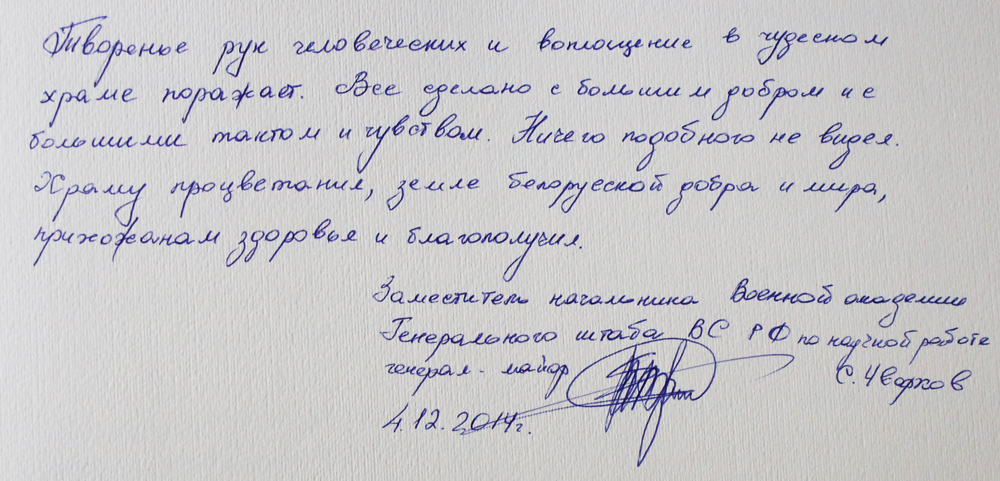 Творенье рук человеческих и воплощение в чудесном
храме поражает. Все сделано с большим добром и с
большими тактом и чувством. Ничего подобного не видел.
Храму процветания, земле белорусской добра и мира,
прихожанам здоровья и благополучия.
Заместитель начальника Военной академии
Генерального штаба ВС РФ по научной работе
генерал-майор
С. Чварков
4.12.2014г.